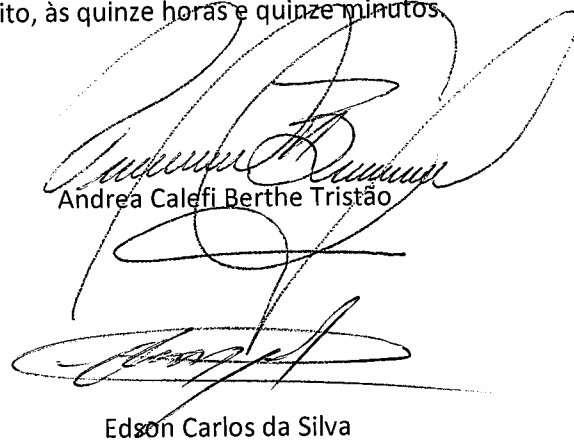 ito, às quinze horas e quinze minutos.
Andrea Calefi Berthe Tristão
Edson Carlos da Silva